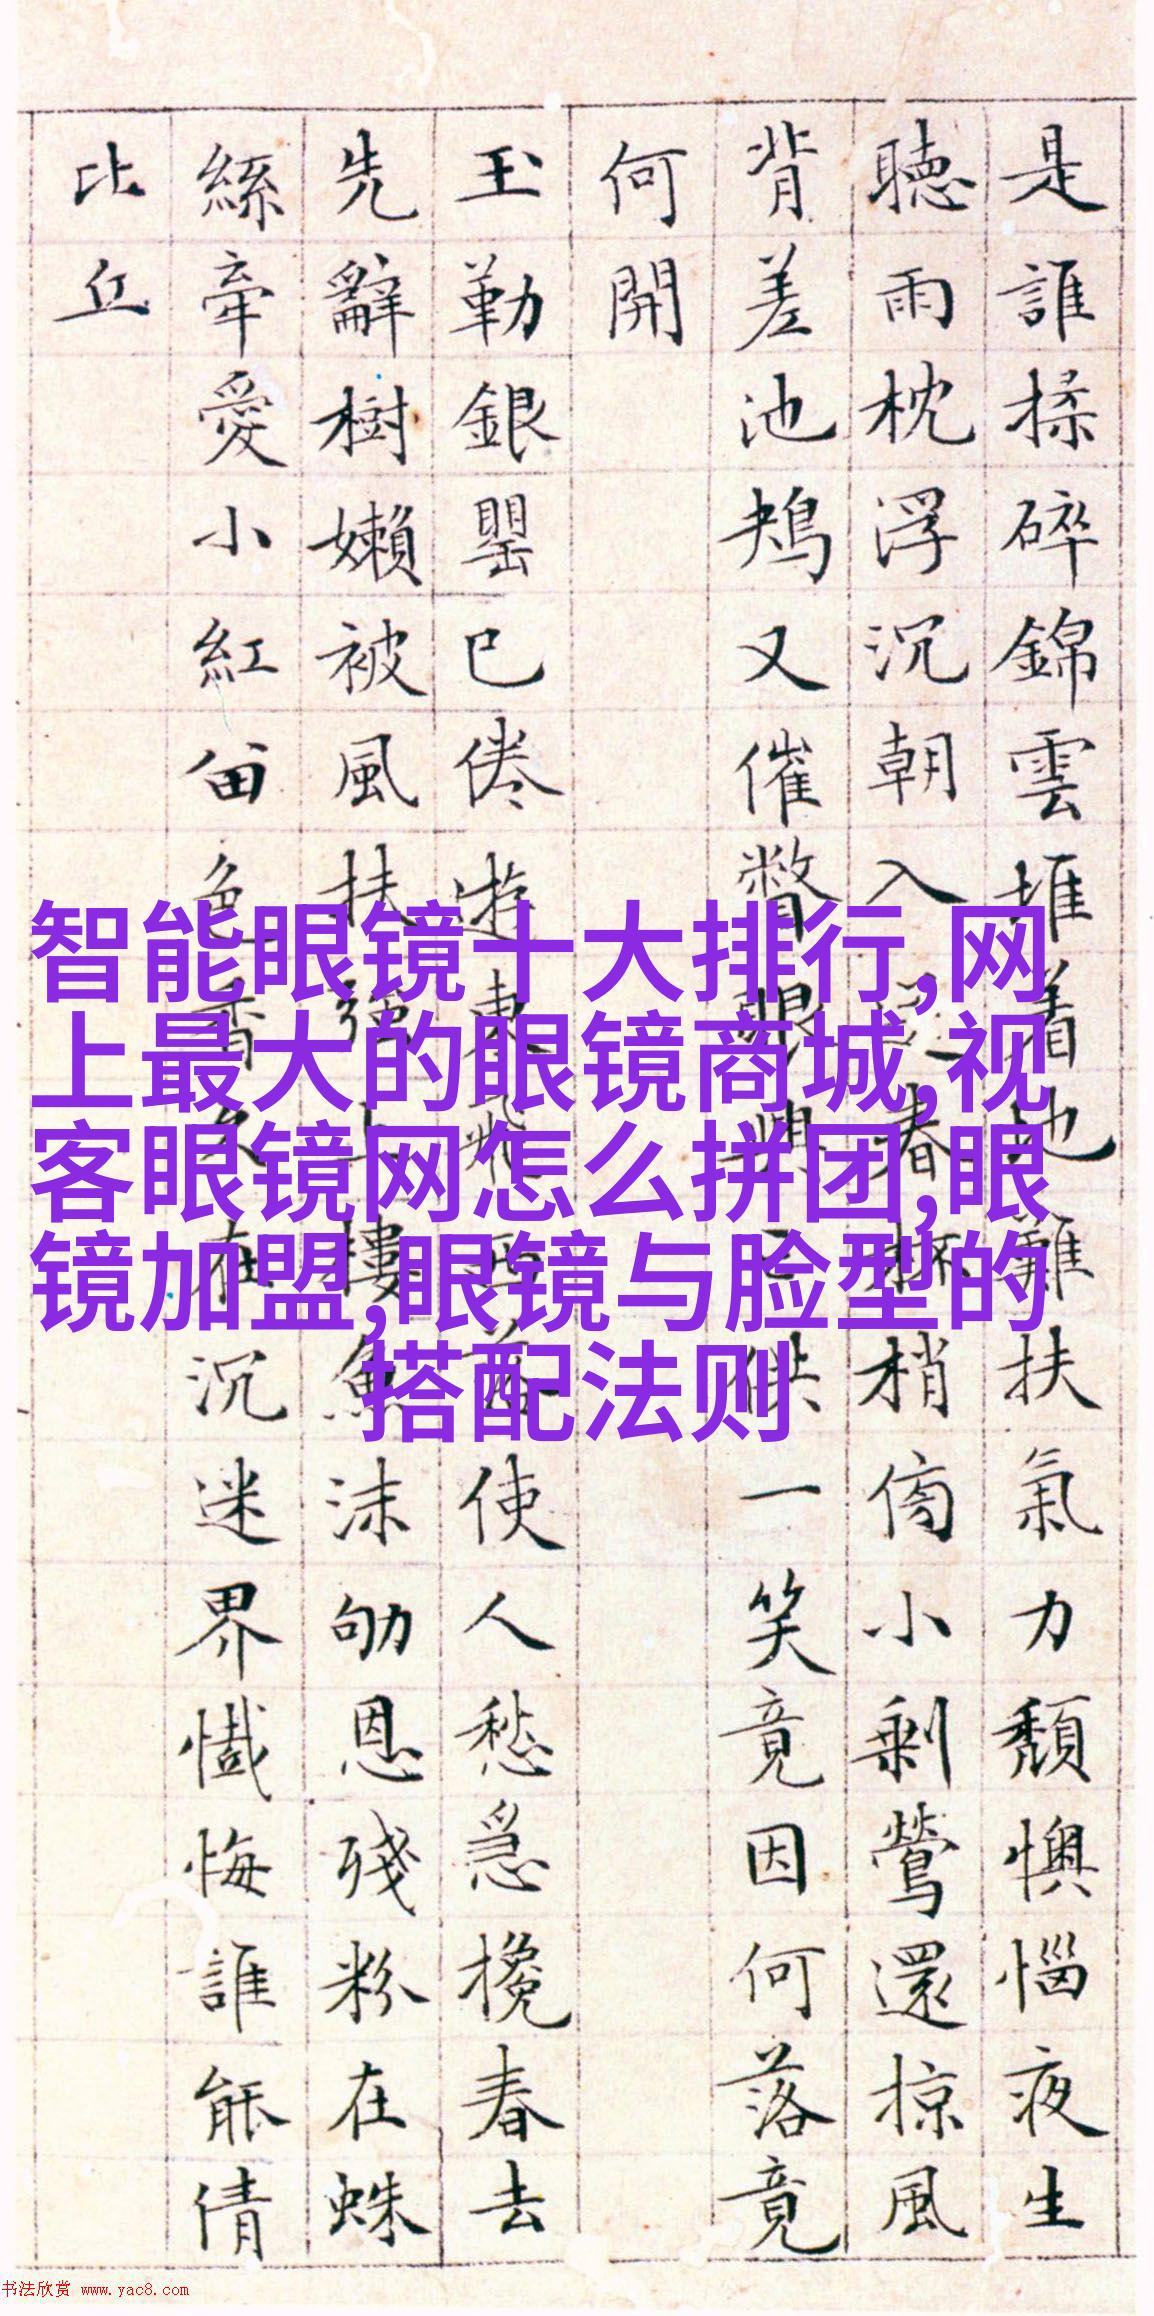 是誰揉碎錦雲堆着地難扶氣力頹懊惱夜生
聴雨枕浮沉朝入春梢傍小剩鶯還掠風
背差池鴂又催瞥眼興亡供一笑竟因何落竟
何開
玉勒銀罌已倦遊東飛西落使人愁急攙春去
先辭樹嬾被風扶強上樓魚沫恩殘粉在蛛
絲牽愛小紅留色香久在沉迷界懺悔誰能倩
比丘
智能眼镜十大排行,网
上最大的眼镜商城,视
客眼镜网怎么拼团,眼
镜加盟,眼镜与脸型的
搭配法则
书法欣赏 www.yac8.com